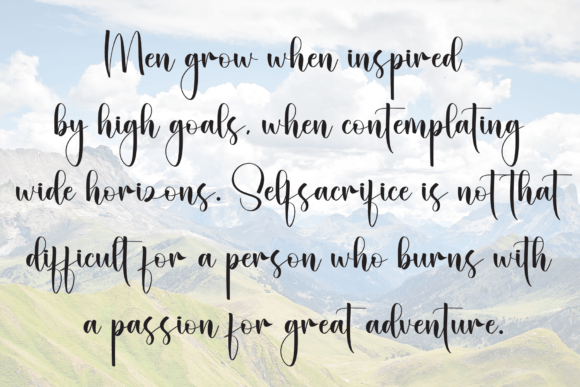 Men grow when inspired
by high goals, when contemplating
wide horizons. Selfsacrifice is not that
difficult for a person who burns with
a passion for great adventure.